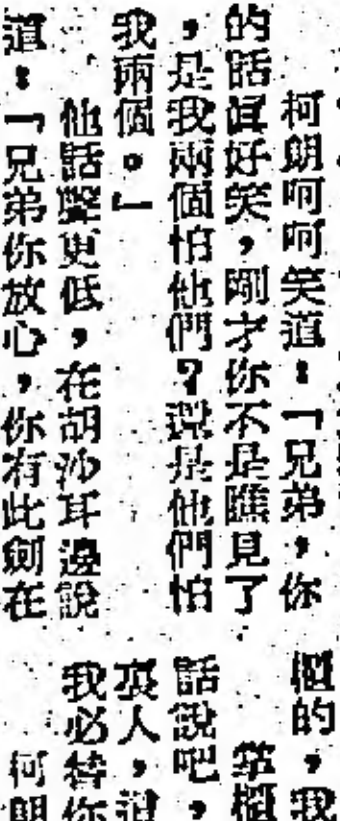 柯朗呵呵笑道：「兄弟，你
的話眞好笑，剛才你不是瞧見了
，是我兩個怕他們？還是他們怕
我兩個。」
他話聲更低，在胡沙耳邊說
道：「兄弟你放心，你有此劍在
櫃的，我
掌櫃
話說吧，
人，道
我必替你
柯朗